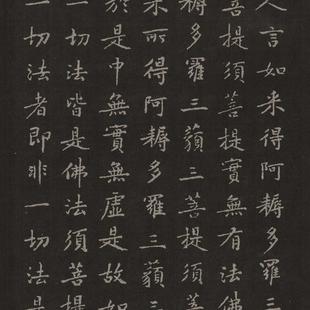 人言如来得阿耨多羅三
菩提須菩提實無有法佛
耨多羅三藐三菩提須菩
来所得阿耨多羅三藐三
於是中無實無虛是故如
一切法皆是佛法須菩提
一切法者即非一切法是